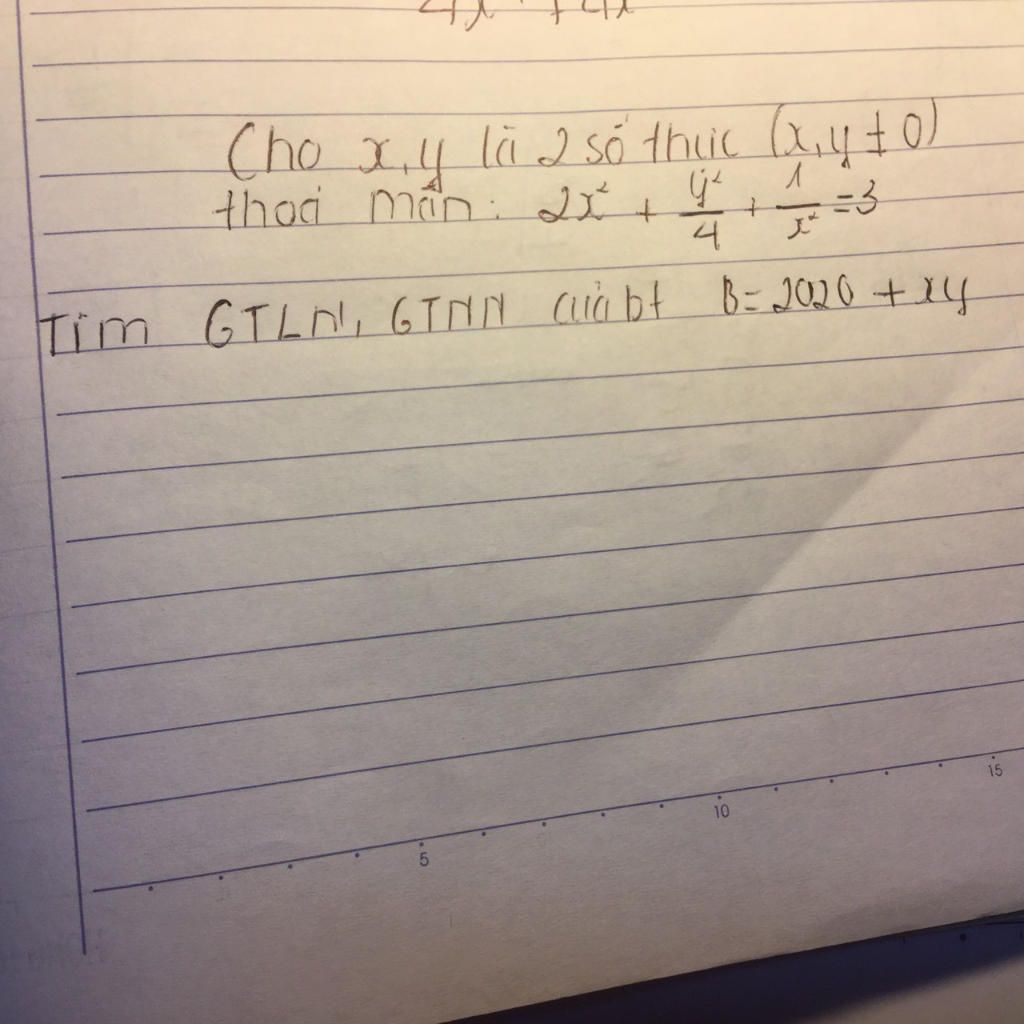 4x² + 4x
Cho x,y là 2 số thực (x,y ≠ 0)
thoả mãn: 2x² + y²/4 + 1/x² = 3
Tìm GTLN, GTNN của bt B = 2020 + xy
5
10
15